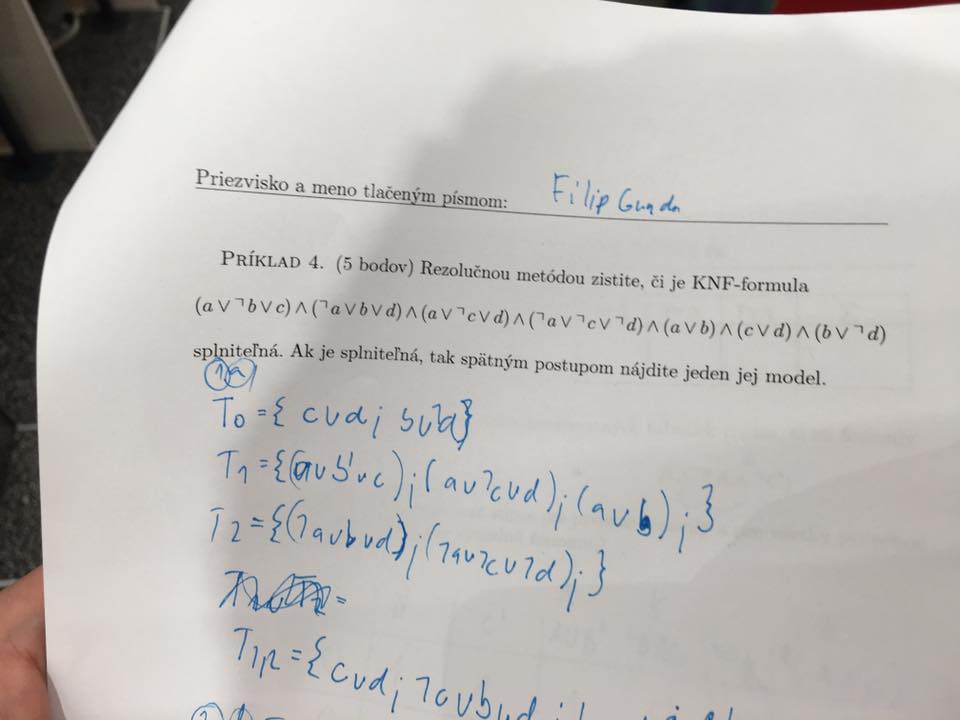 Priezvisko a meno tlačeným písmom: Filip
PRÍKLAD 4. (5 bodov) Rezolučnou metódou zistite, či je KNF-formula
(a ∨ ¬b ∨ c) ∧ (¬a ∨ b ∨ d) ∧ (a ∨ ¬c ∨ d) ∧ (¬a ∨ ¬c ∨ ¬d) ∧ (a ∨ b) ∧ (c ∨ d) ∧ (b ∨ ¬d)
splniteľná. Ak je splniteľná, tak spätným postupom nájdite jeden jej model.
1 a
T0 = { c∨d ; b∨¬d }
T1 = {(a∨b'∨c) ; (a∨¬c∨d) ; (a∨b) ; }
T2 = {(¬a∨b∨d) ; (¬a∨¬c∨¬d) ; }
T1,2 = { c∨d ; ¬c∨b∨d ;